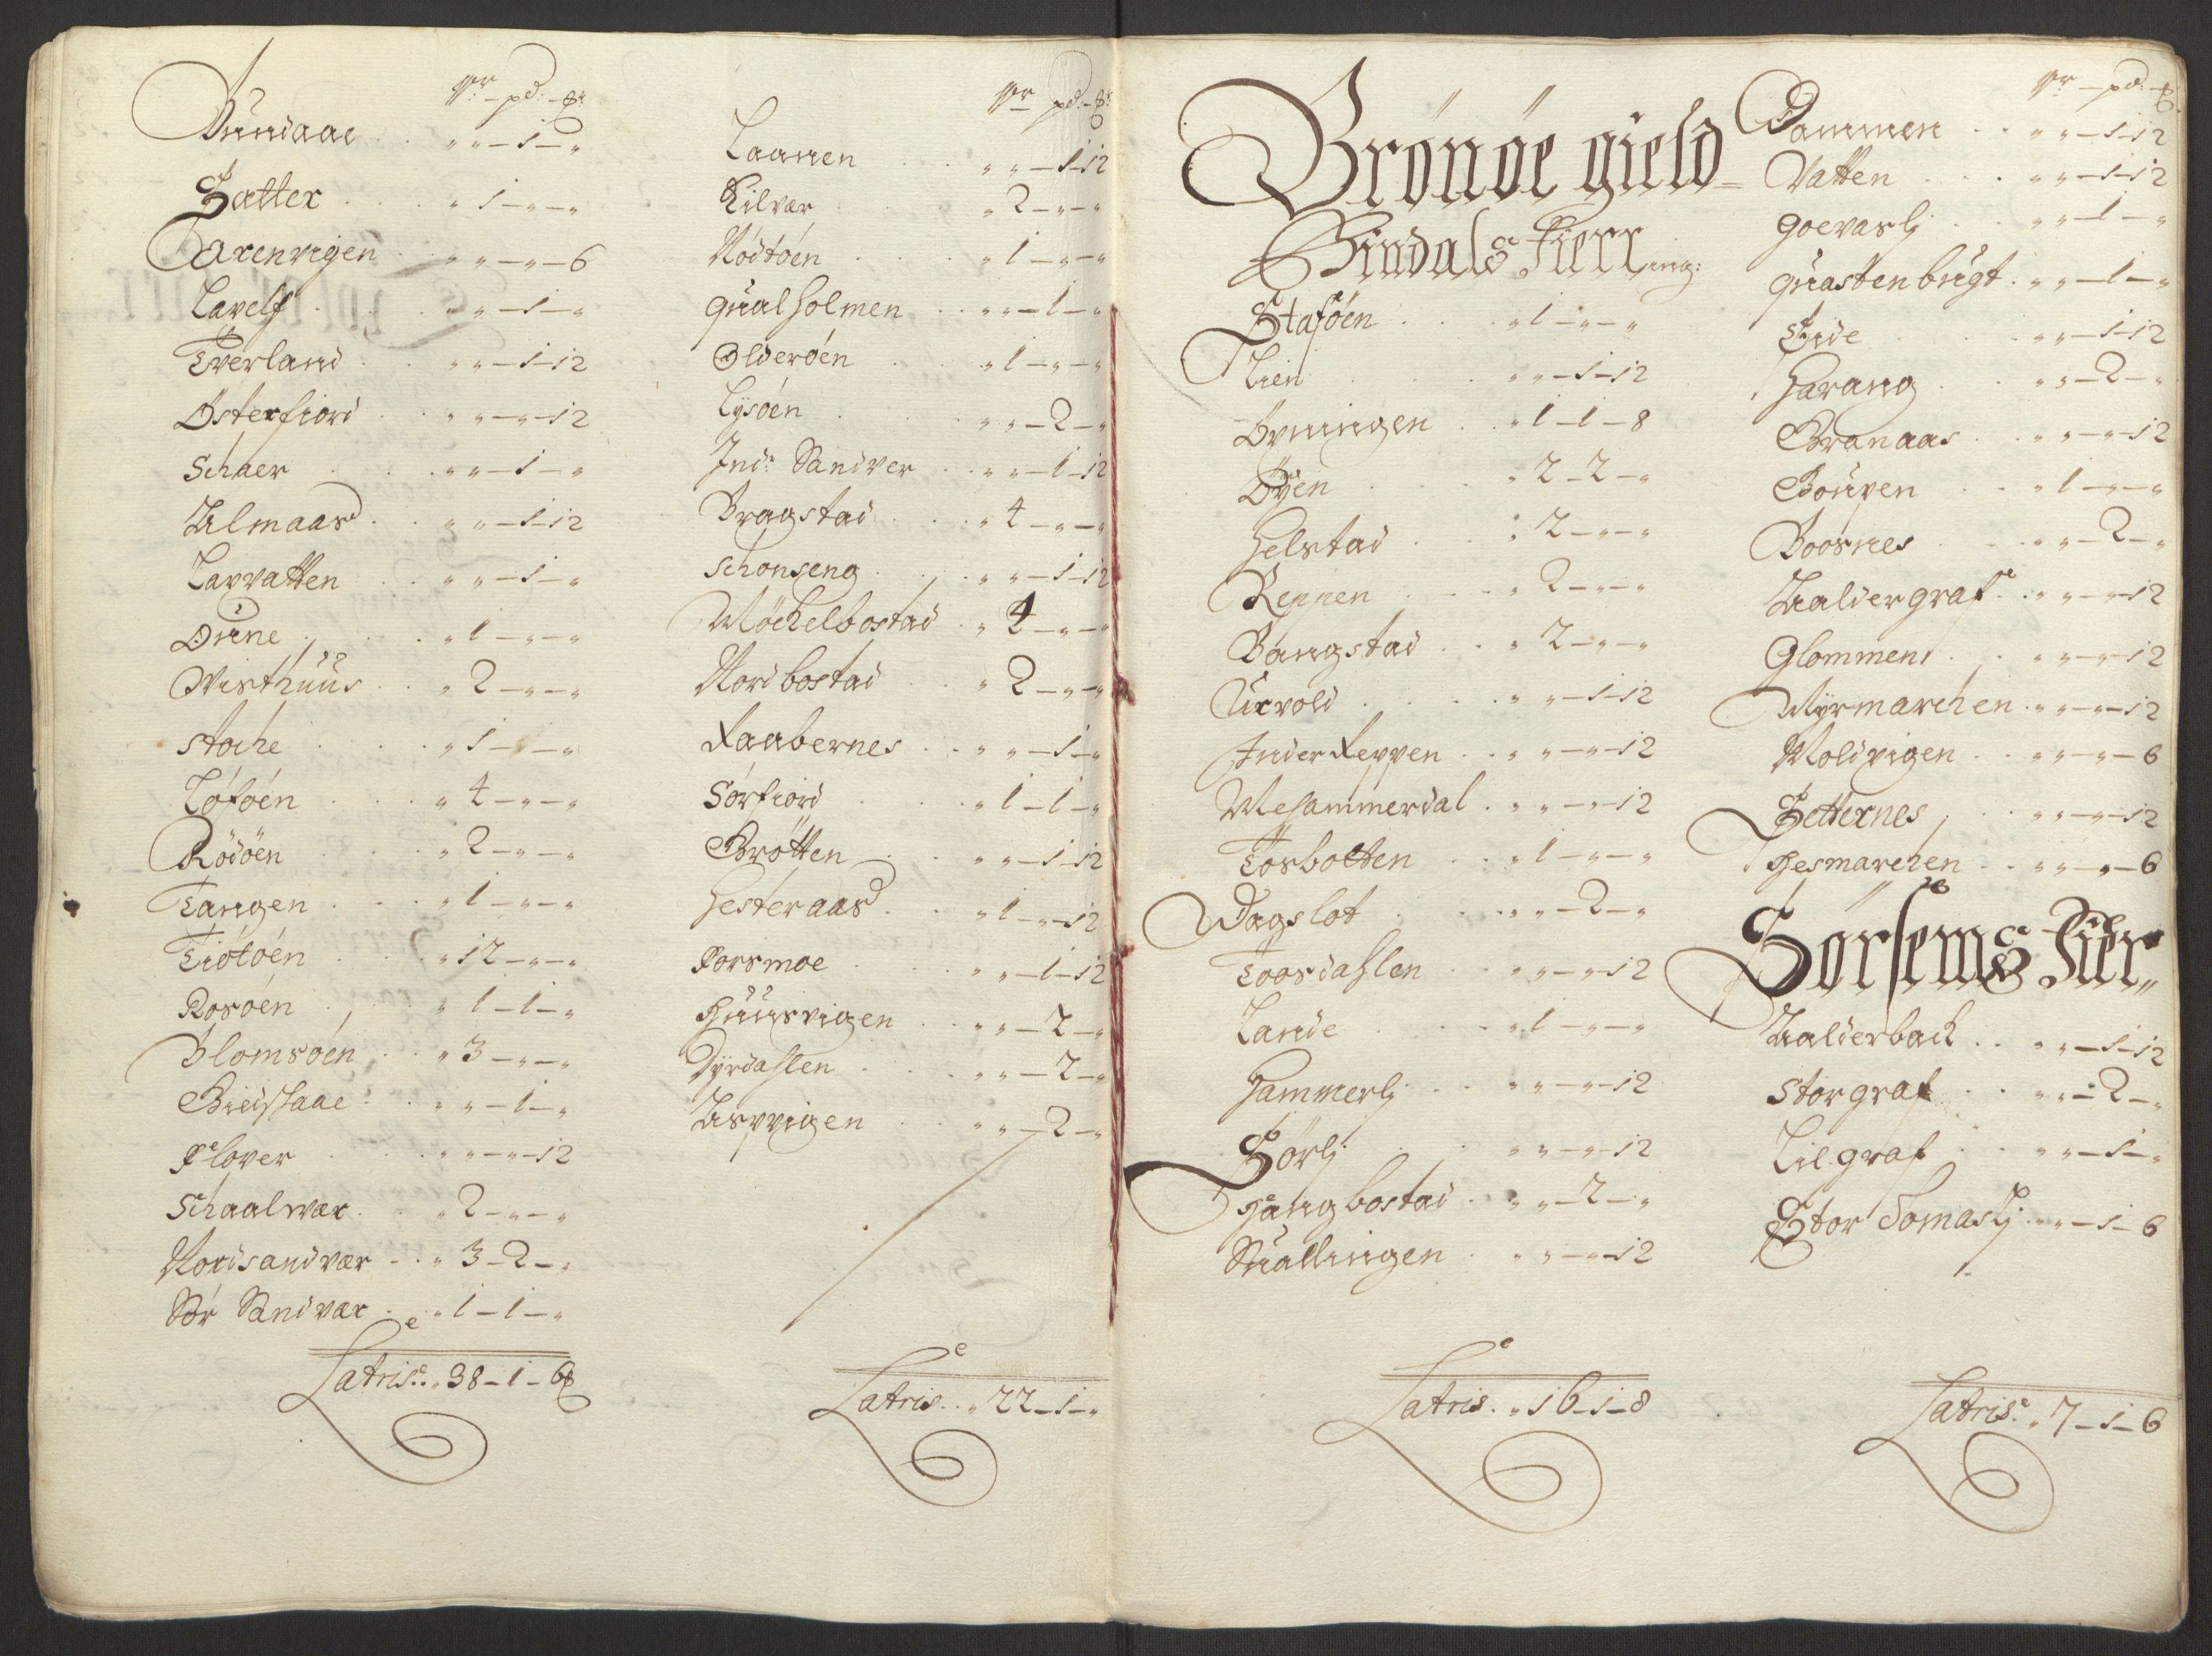 Vr – pd: – ℔
Bundaae . . „ „ – 1 – „
Satter . . . „ 1 – „ – „
Axenvigen . . „ „ – „ – 6
Lavelf . . . „ „ – 1 – „
Tverland . . „ „ – 1 – 12
Østerfiord . . „ „ – „ – 12
Schaer . . . „ „ – 1 – „
Almaas . . „ „ – 1 – 12
Lavvatten . . „ „ – 1 – „
Orine . . . „ 1 – „ – „
Wisthuus . . „ 2 – „ – „
Stoche . . . „ 1 – „ – „
Löföen . . . „ 4 – „ – „
Rödöen . . . „ 2 – „ – „
Tangen . . . „ 1 – „ – „
Tiötöen . . . „ 12 – „ – „
Rosöen . . . „ 1 – 1 – „
Blomsöen . . „ 3 – „ – „
. . „ „ – 1 – „
Flover . . . „ „ – „ – 12
Schaalwær . . „ 2 – „ – „
Nordsandvær . . „ 3 – 2 – „
Sör Sandvær . . „ 1 – 1 – „
Latris: „ 38 – 1 – 6 ℔
Vr pd: – ℔
Laanen . . „ „ – 1 – 12
Kilvær „ 2 – „ – „
Rödtöen . . . „ 1 – „ – „
Qualholmen . . „ „ – 1 – „
Olderöen . . „ 1 – „ – „
Lysöen . . „ „ – 2 – „
Indr Sandver . . „ „ – 1 – 12
Bragstad . . . „ 4 – „ – „
Schonseng . . „ „ – 1 – 12
Möchelbostad . „ 4 – „ – „
Nordbostad . . „ 2 – „ – „
Raabernes . . „ „ – 1 – „
Sörfiord . . „ 1 – 1 – „
Brötten . . „ „ – 1 – 12
Hesteraas . . „ 1 – „ – 12
Forsmoe . . „ „ – 1 – 12
Huusvigen . . „ „ – 2 – „
Dyrdahlen . . „ „ – 2 – „
Aspvigen . . „ „ – 2 – „
Latris . . „ 22 – 1 – „
Brönöe gield
Bindals Fierring:
Staföen . . . „ 1 – „ – „
Lien . . . „ „ – 1 – 12
Övningen . . „ 1 – 1 – 8
Öyen . . . „ 2 – 2 – „
Helstad . . „ 2 – „ – „
Reppen . . . „ 2 – „ – „
Bangstad . . „ 2 – „ – „
Urvold . . . „ „ – 1 – 12
Inder Reppen . . „ „ – „ – 12
Mehammerdal . „ „ – „ – 12
Tosbotten . . „ 1 – „ – „
Dagslot . . „ „ – 2 – „
Toosdahlen . . „ „ – „ – 12
Lande . . . „ 1 – „ – „
Hammerlj . . „ „ – „ – 12
Sörlj . . „ „ – „ – 12
Hangbostad . . „ „ – 2 – „
Skallingen . . „ „ – „ – 12
Latris . „ 16 – 1 – 8
Vr – pd: – ℔
Dammen . . „ „ – 1 – 12
Vatten . . . „ „ – 1 – 12
Goevaslj . . „ „ – 1 – „
Quastenbugt . „ „ – 1 – „
Eide . . „ „ – 1 – 12
Harang . . „ „ – 2 – „
Granaas . . „ „ – „ – 12
Goupen . . „ 1 – „ – „
Boosnes . . „ „ – 2 – „
Aaldergraf . . „ „ – „ – 12
Glommen . . „ „ – „ – 12
Myrmarchen . „ „ – „ – 12
Moldvigen . . „ „ – „ – 6
Setternes . . „ „ – „ – 12
Hesmarchen . . „ „ – „ – 6
Sörsems Fier„
Aalderbach . . „ „ – 1 – 12
Storgraf . . „ „ – 2 – „
Lil.graf . . „ „ – 1 – „
Stor Somaslj . . „ „ – 1 – 6
Latris: „ 7 – 1 – 6